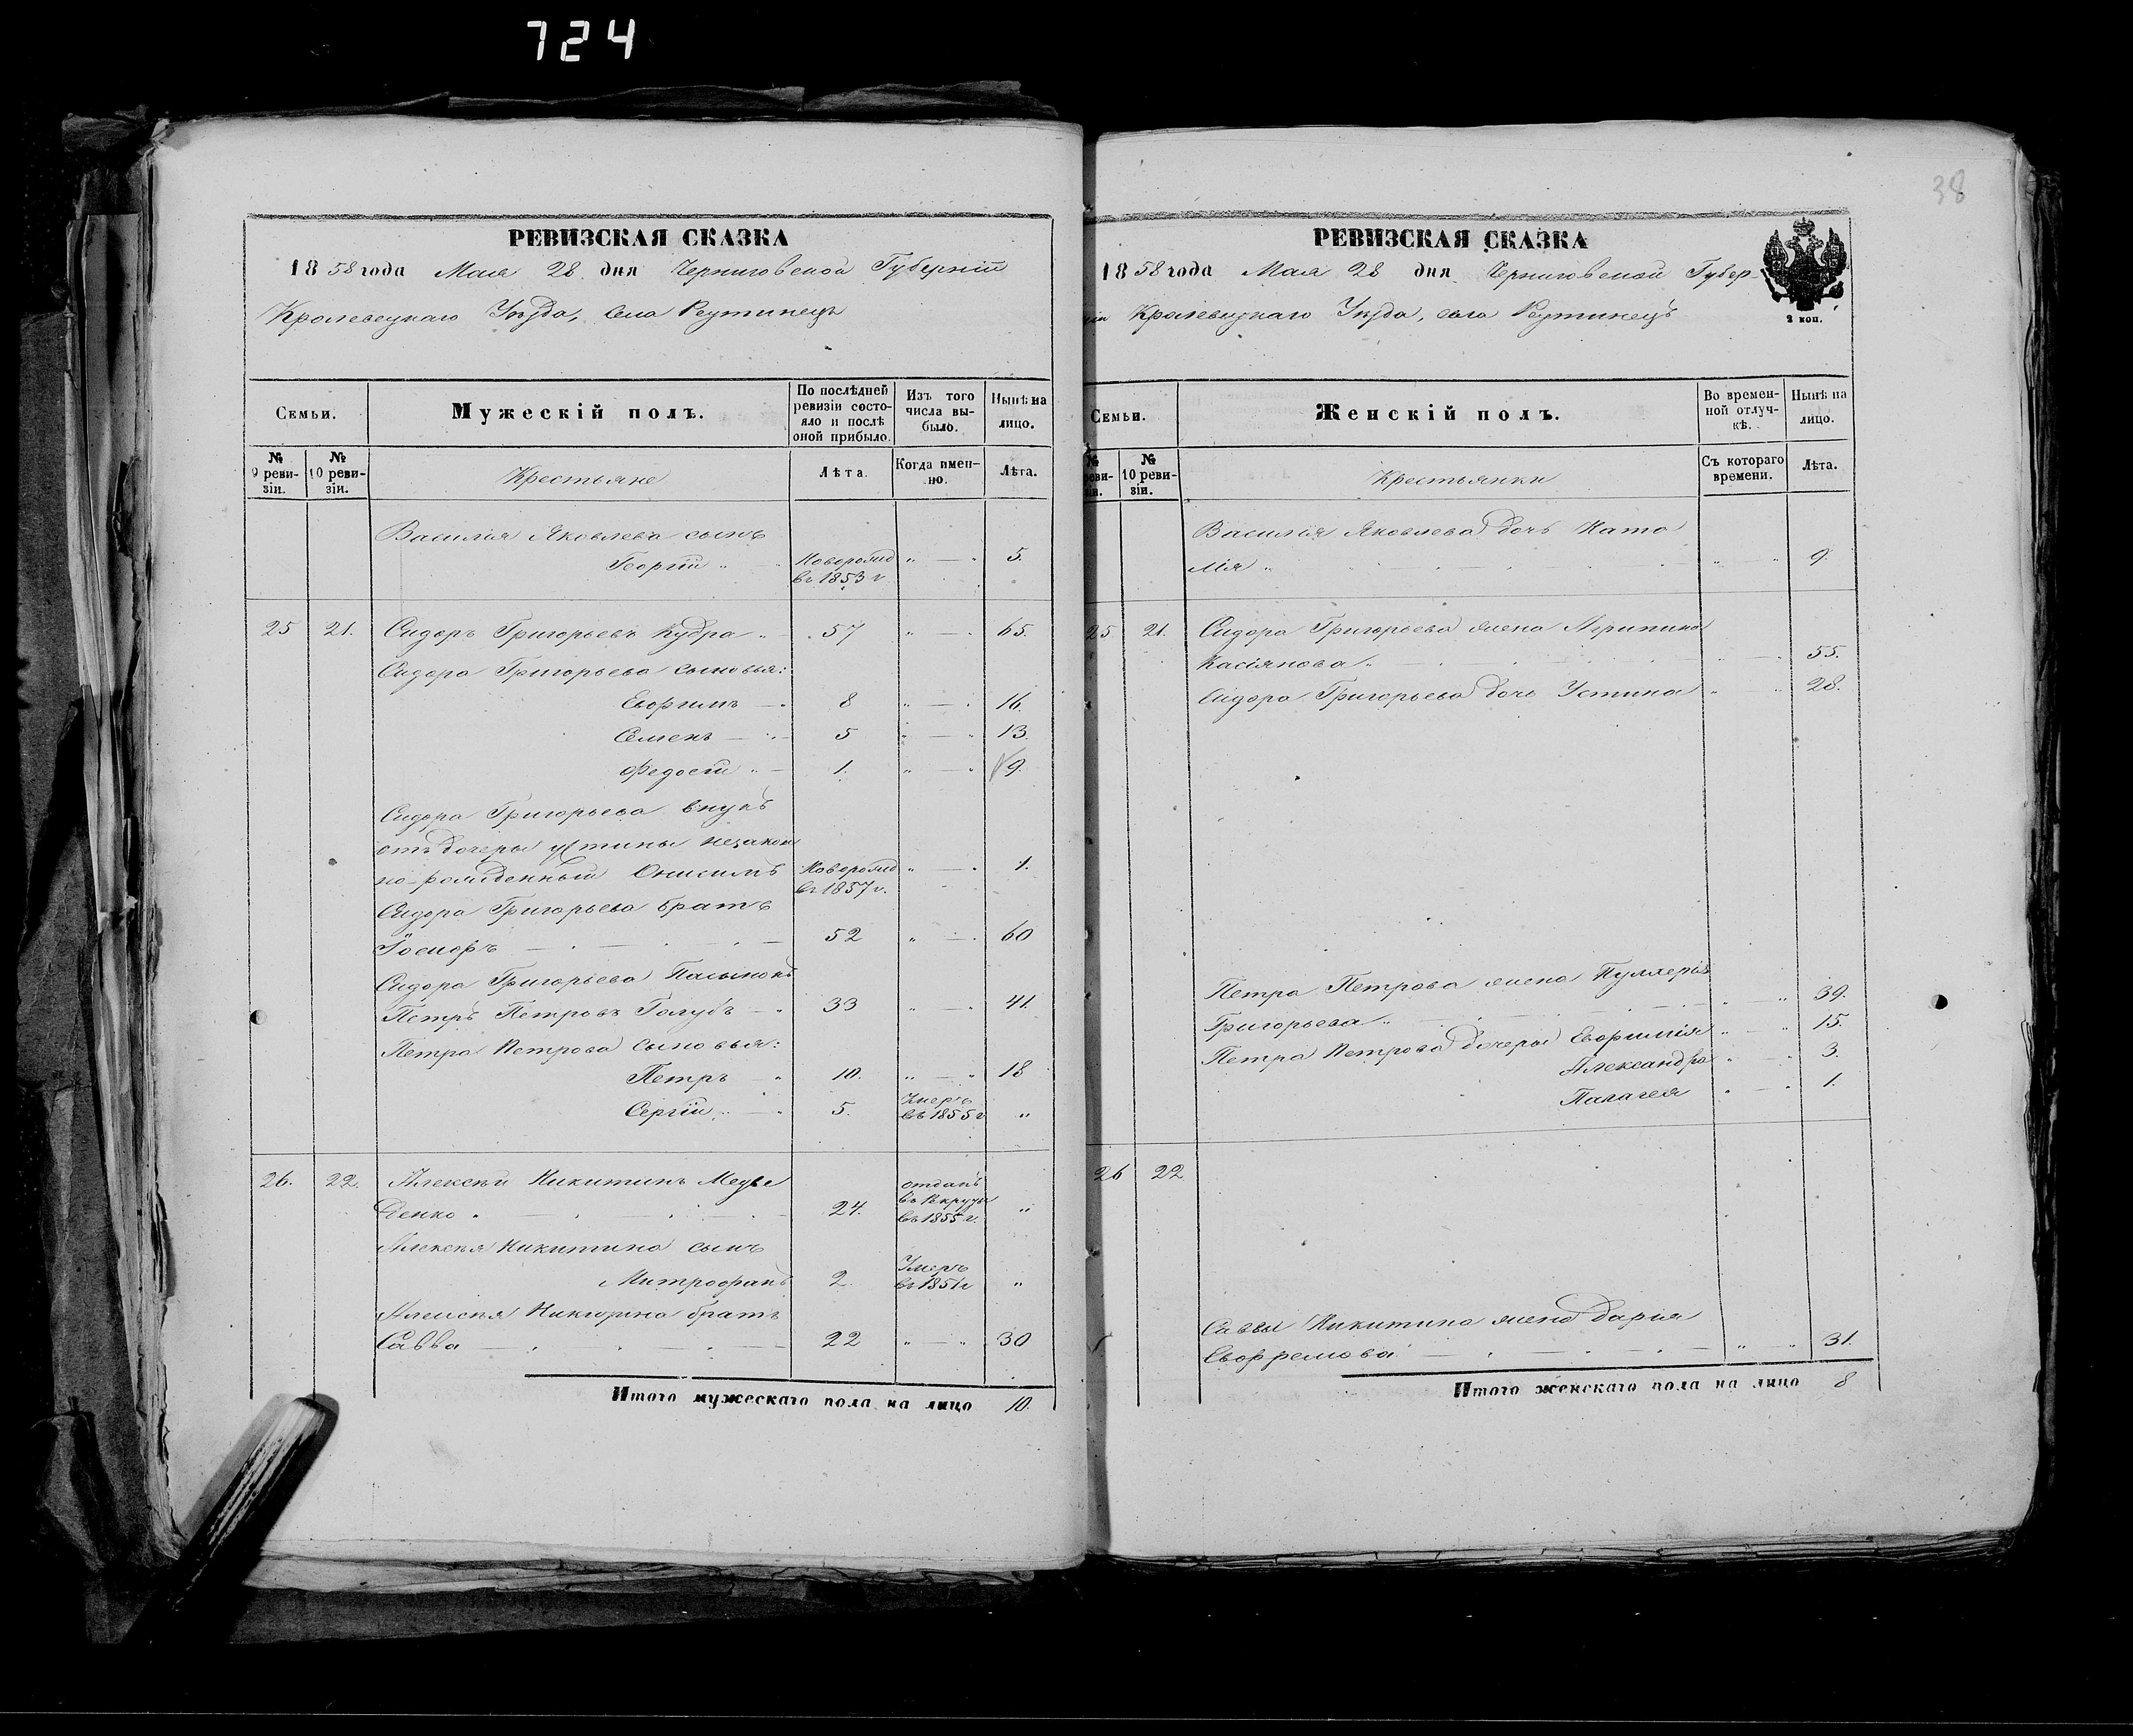 724
38
РЕВИЗСКАЯ СКАЗКА
1858 года Мая 28 дня Черниговской Губерніи
Кролевецкаго Уѣзда, села Реутинецъ
Семьи. Мужескій полъ. По послѣдней ревизіи состояло и послѣ оной прибыло. Изъ того числа выбыло. Нынѣ на лицо.
№ 9 ревизіи. № 10 ревизіи. Крестьяне Лѣта. Когда именно. Лѣта.
Василія Яковлева сынъ
Георгій " Новорожд въ 1853 г " — " 5.
25 21. Сидоръ Григорьевъ Кудра " 57 " — " 65.
Сидора Григорьева сыновья:
Евфимъ — " 8 " — " 16.
Семенъ — " 5 " — " 13.
Федосій " — 1. " — " 9.
Сидора Григорьева внукъ
отъ дочеры Устины незакон
но-рожденный Онисимъ Новорожд въ 1857 г. " — " 1.
Сидора Григорьева братъ
Іосифъ — 52 " — " 60
Сидора Григорьева Пасынокъ
Петръ Петровъ Голубъ — " 33 " — " 41.
Петра Петрова сыновья:
Петръ — " 10. " — " 18
Сергій " — " 5. Умеръ въ 1855 г "
26. 22. Алексѣй Никитинъ Медве
денко " 24. отданъ въ Рекруты въ 1855 г. "
Алексѣя Никитина сынъ
Митрофанъ 2. Умеръ въ 1851 г "
Алексѣя Никитина братъ
Савва — 22 " — " 30
Итого мужескаго пола на лицо 10.
РЕВИЗСКАЯ СКАЗКА
1858 года Мая 28 дня Черниговской Губер-
ніи Кролевецкаго Уѣзда, села Реутинецъ
2 коп.
Семьи. Женскій полъ. Во временной отлучкѣ. Нынѣ на лицо.
№ реви-зіи. № 10 ревизіи. Крестьянки Съ котораго времени. Лѣта.
Василія Яковлева дочь Ната
лія " " — " 9.
25 21. Сидора Григорьева жена Агрипина
Касіянова " " — " 55.
Сидора Григорьева дочь Устина " " 28.
Петра Петрова жена Пулхерія
Григорьева " " — " 39.
Петра Петрова дочеры Евфимія " — " 15.
Александра " — " 3.
Палагея " — " 1.
26 22
Саввы Никитина жена Дарія
Евфремова " " 31.
Итого женскаго пола на лицо 8